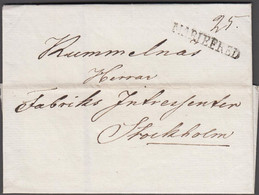 25.
MARIEFRED
Kummelnäs
Herrar
Fabriks Intressenter
Stockholm